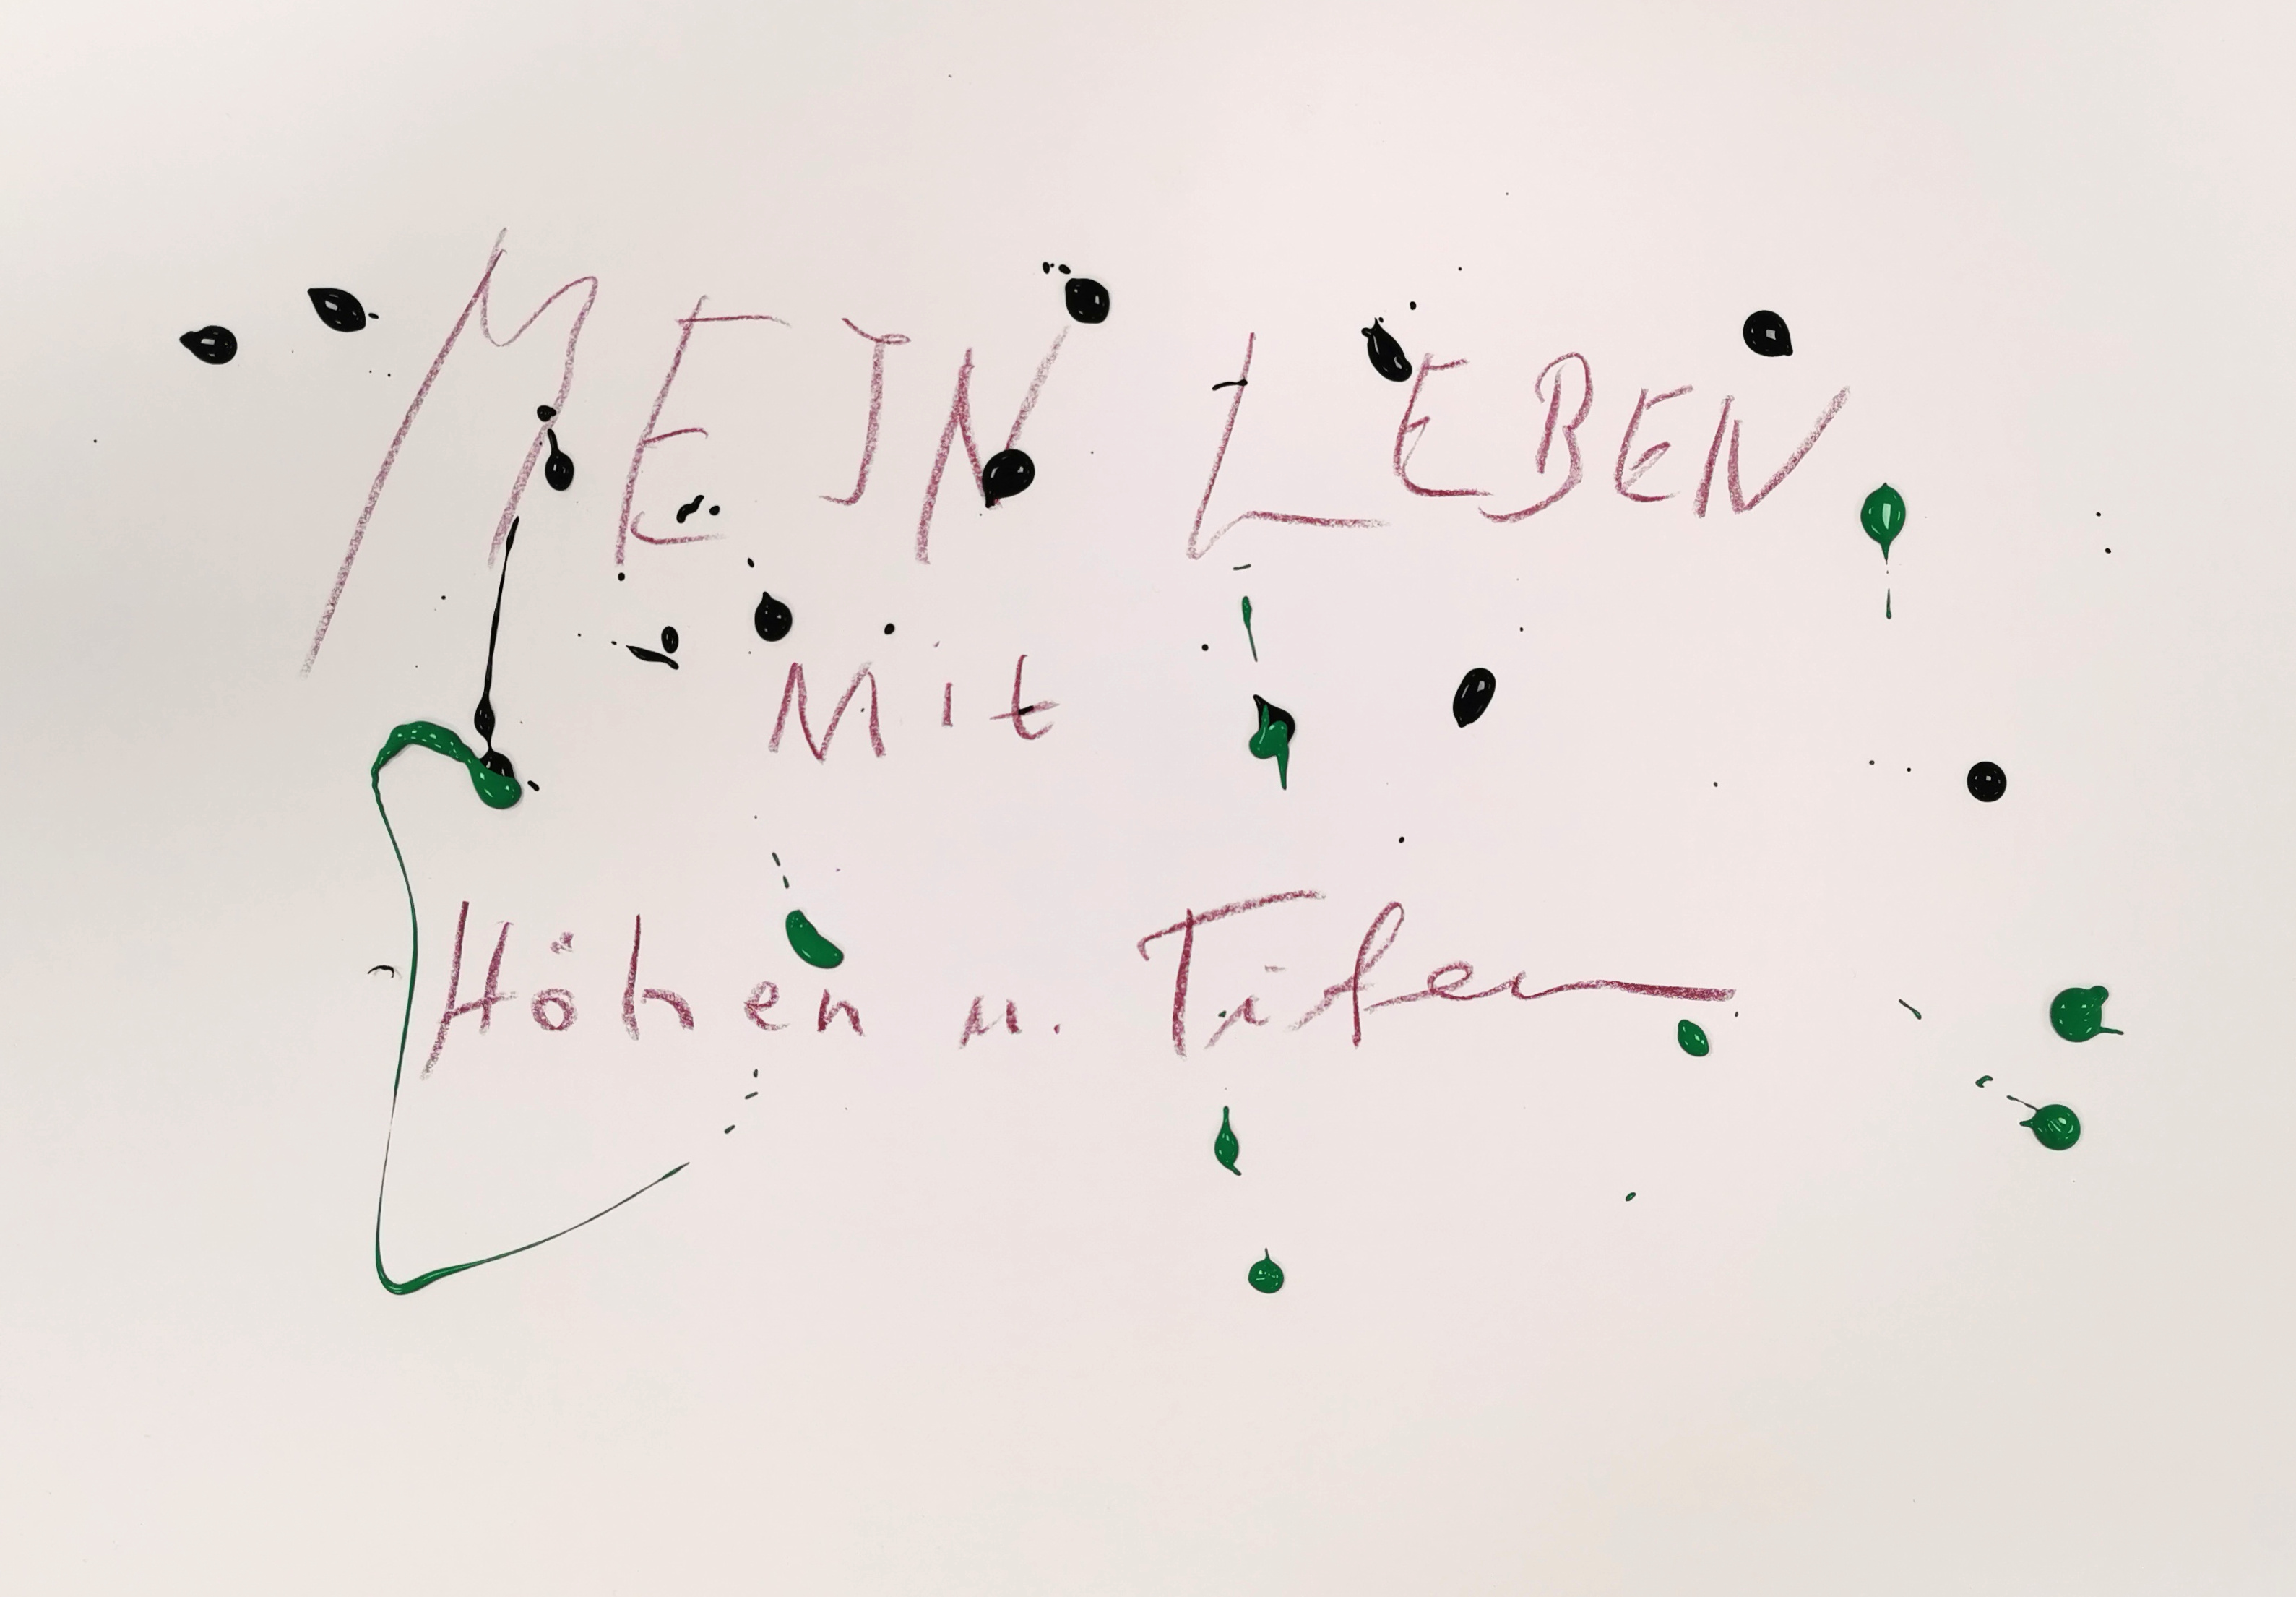 MEJN LEBEN
Mit
Höhen u. Tifen